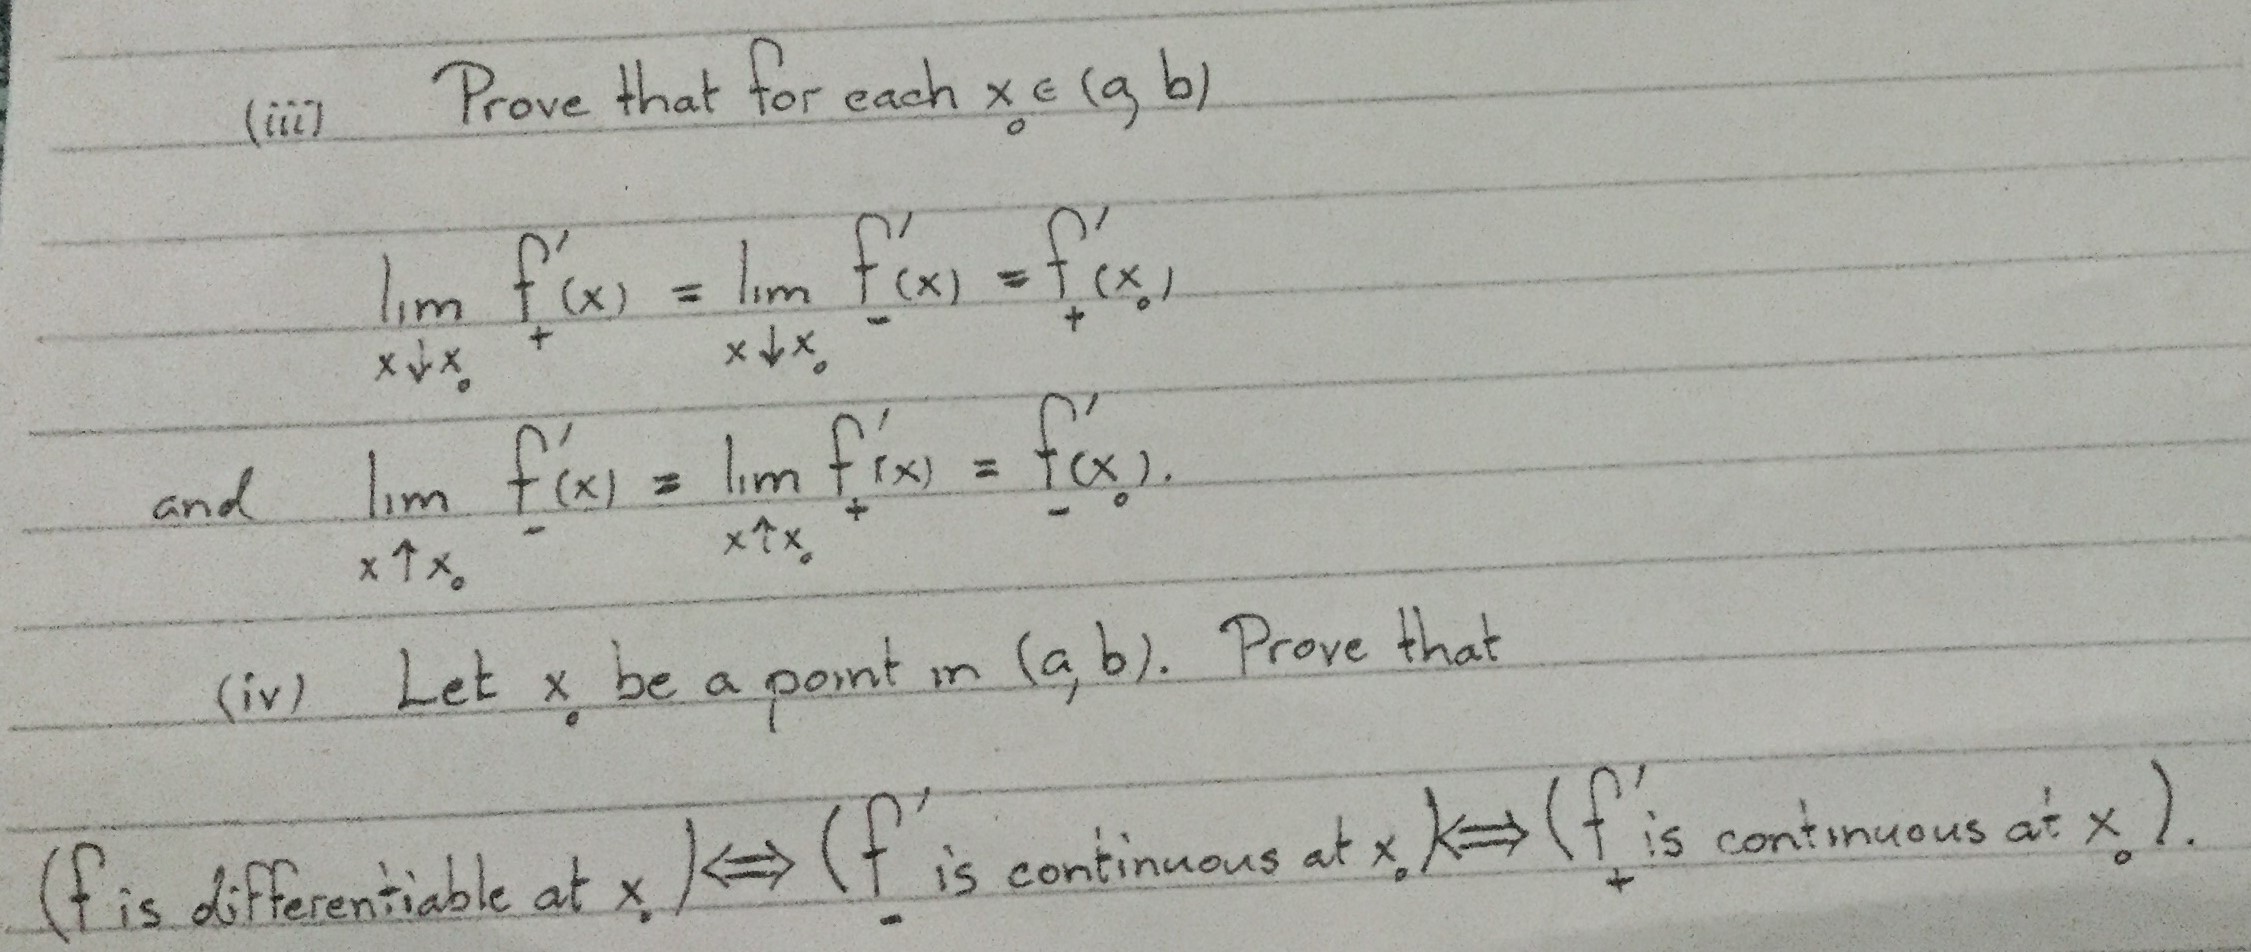 (iii) Prove that for each x₀ ∈ (a, b)
lim f'₊(x) = lim f'₋(x) = f'₊(x₀)
x↓x₀ x↓x₀
and lim f'₋(x) = lim f'₊(x) = f'₋(x₀).
x↑x₀ x↑x₀
(iv) Let x₀ be a point in (a, b). Prove that
(f is differentiable at x₀) ⟺ (f'₋ is continuous at x₀) ⟺ (f'₊ is continuous at x₀).